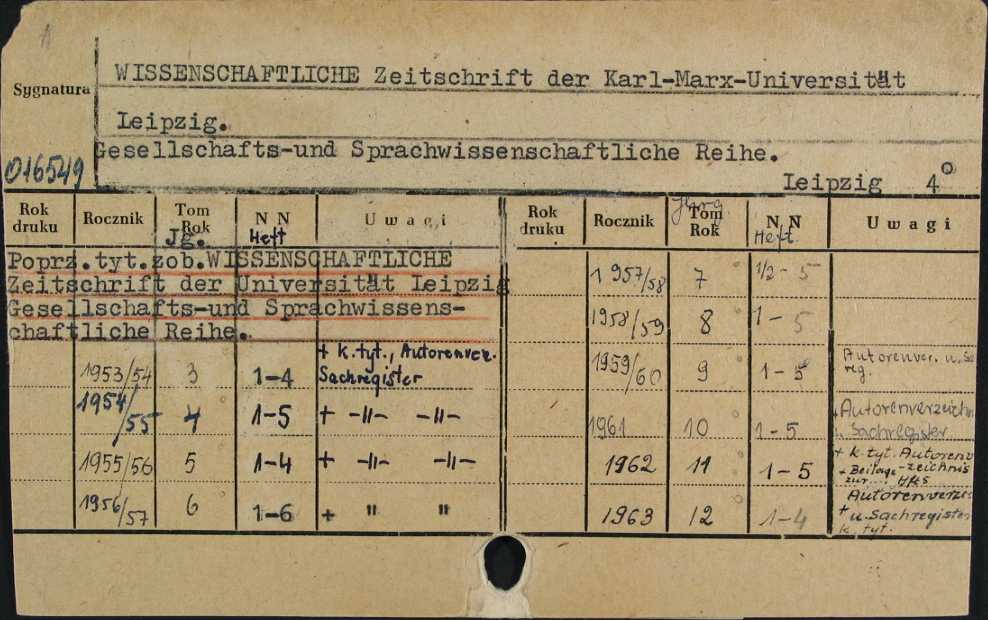 WISSENSCHAFTLICHE Zeitschrift der Karl-Marx-Universität
Sygnatura
Leipzig.
Gesellschafts-und Sprachwissenschaftliche Reihe.
016549
Leipzig 4°
Rok druku Rocznik Tom Rok N N U w a g i
Jg. Heft
Poprz.tyt.zob.WISSENSCHAFTLICHE
Zeitschrift der Universität Leipzig
Gesellschafts-und Sprachwissens-
chaftliche Reihe.
1953/54 3 1-4 + k.tyt., Autorenver. Sachregister
1954/55 4 1-5 + -"- -"-
1955/56 5 1-4 + -"- -"-
1956/57 6 1-6 + " "
Rok druku Rocznik Tom Rok N N U w a g i
Jhrg. Heft.
1957/58 7 1/2-5
1958/59 8 1-5
1959/60 9 1-5 Autorenver. u. Sa reg.
1961 10 1-5 + Autorenverzeichn u. Sachregister
1962 11 1-5 + k.tyt. Autorenv -zeichnis + Beilage zur... Hft5
1963 12 1-4 Autorenverzei + u. Sachregister k.tyt.